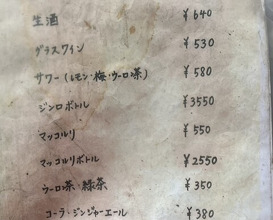 生酒 ¥640
グラスワイン ¥530
サワー(レモン・梅・ウーロン茶) ¥580
ジンロボトル ¥3550
マッコルリ ¥550
マッコルリボトル ¥2550
ウーロン茶・緑茶 ¥350
コーラ・ジンジャーエール ¥380